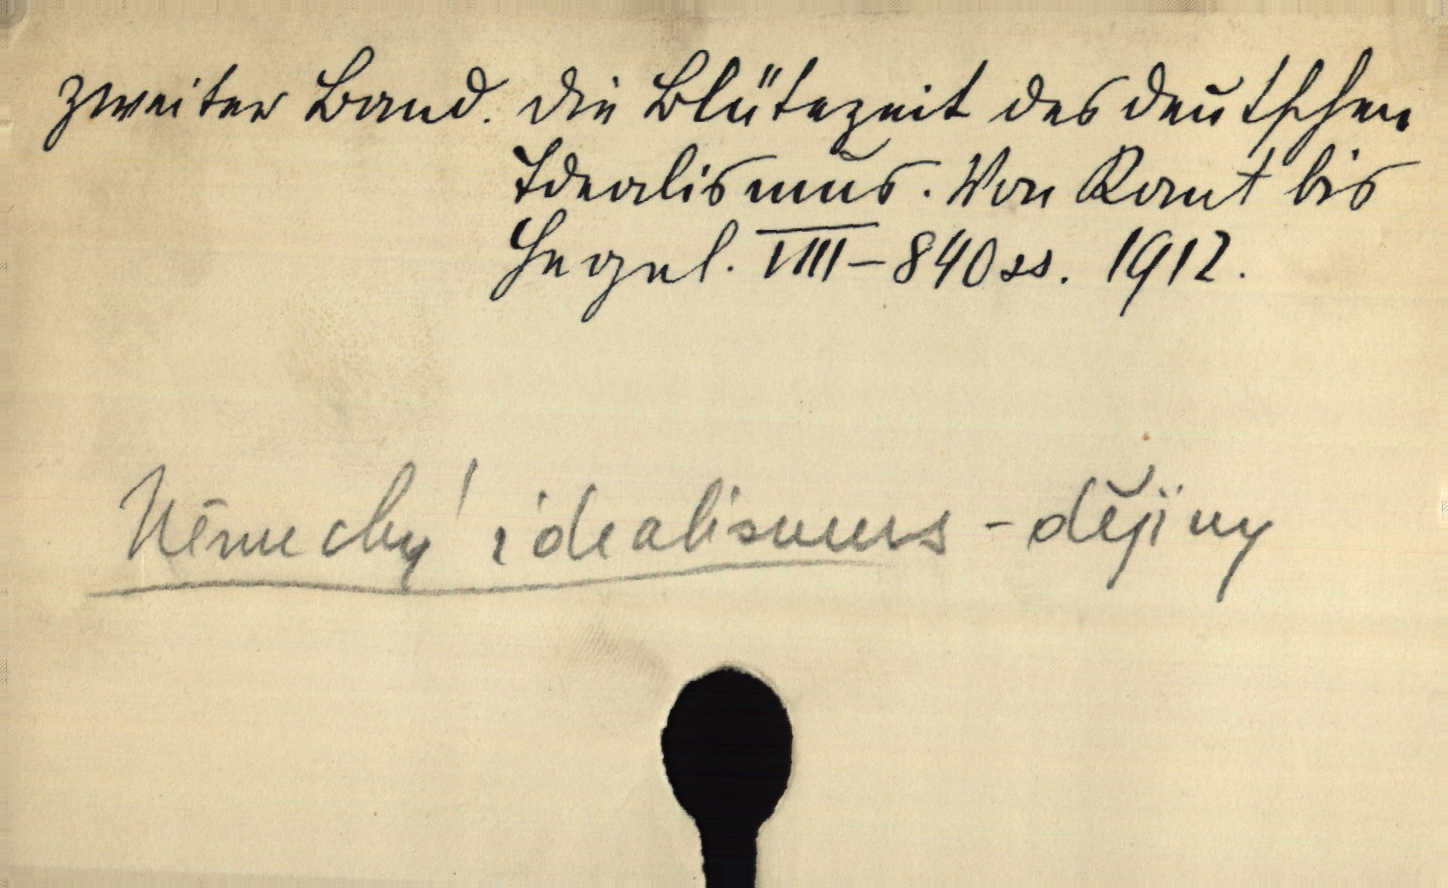 Zweiter Band. Die Blütezeit des deutschen
Idealismus. Von Kant bis
Hegel. VIII-840 ss. 1912.
Německý idealismus - dějiny